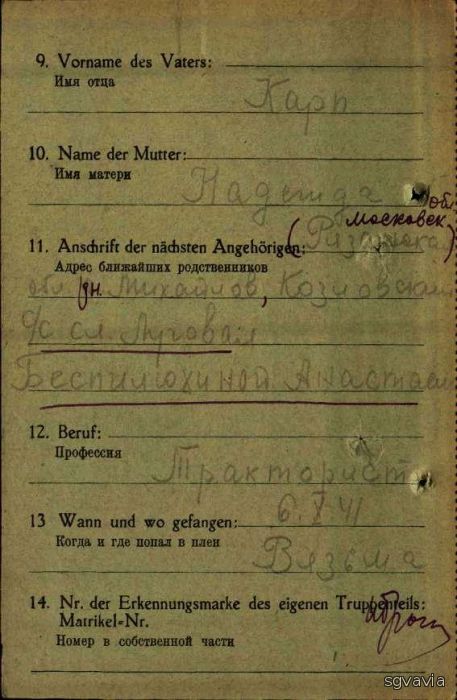 9. Vorname des Vaters:
Имя отца
Карп
10. Name der Mutter:
Имя матери
Надежда
обл
Московск.
11. Anschrift der nächsten Angehörigen: (Рязанская)
Адрес ближайших родственников
обл. рн. Михайлов, Козловский
с/с сл. Луговая
Беспилюхиной Анастас
12. Beruf:
Профессия
Тракторист
13 Wann und wo gefangen: 6.X.41
Когда и где попал в плен
Вязьма
14. Nr. der Erkennungsmarke des eigenen Truppenteils:
Matrikel=Nr.
Номер в собственной части
sgvavia